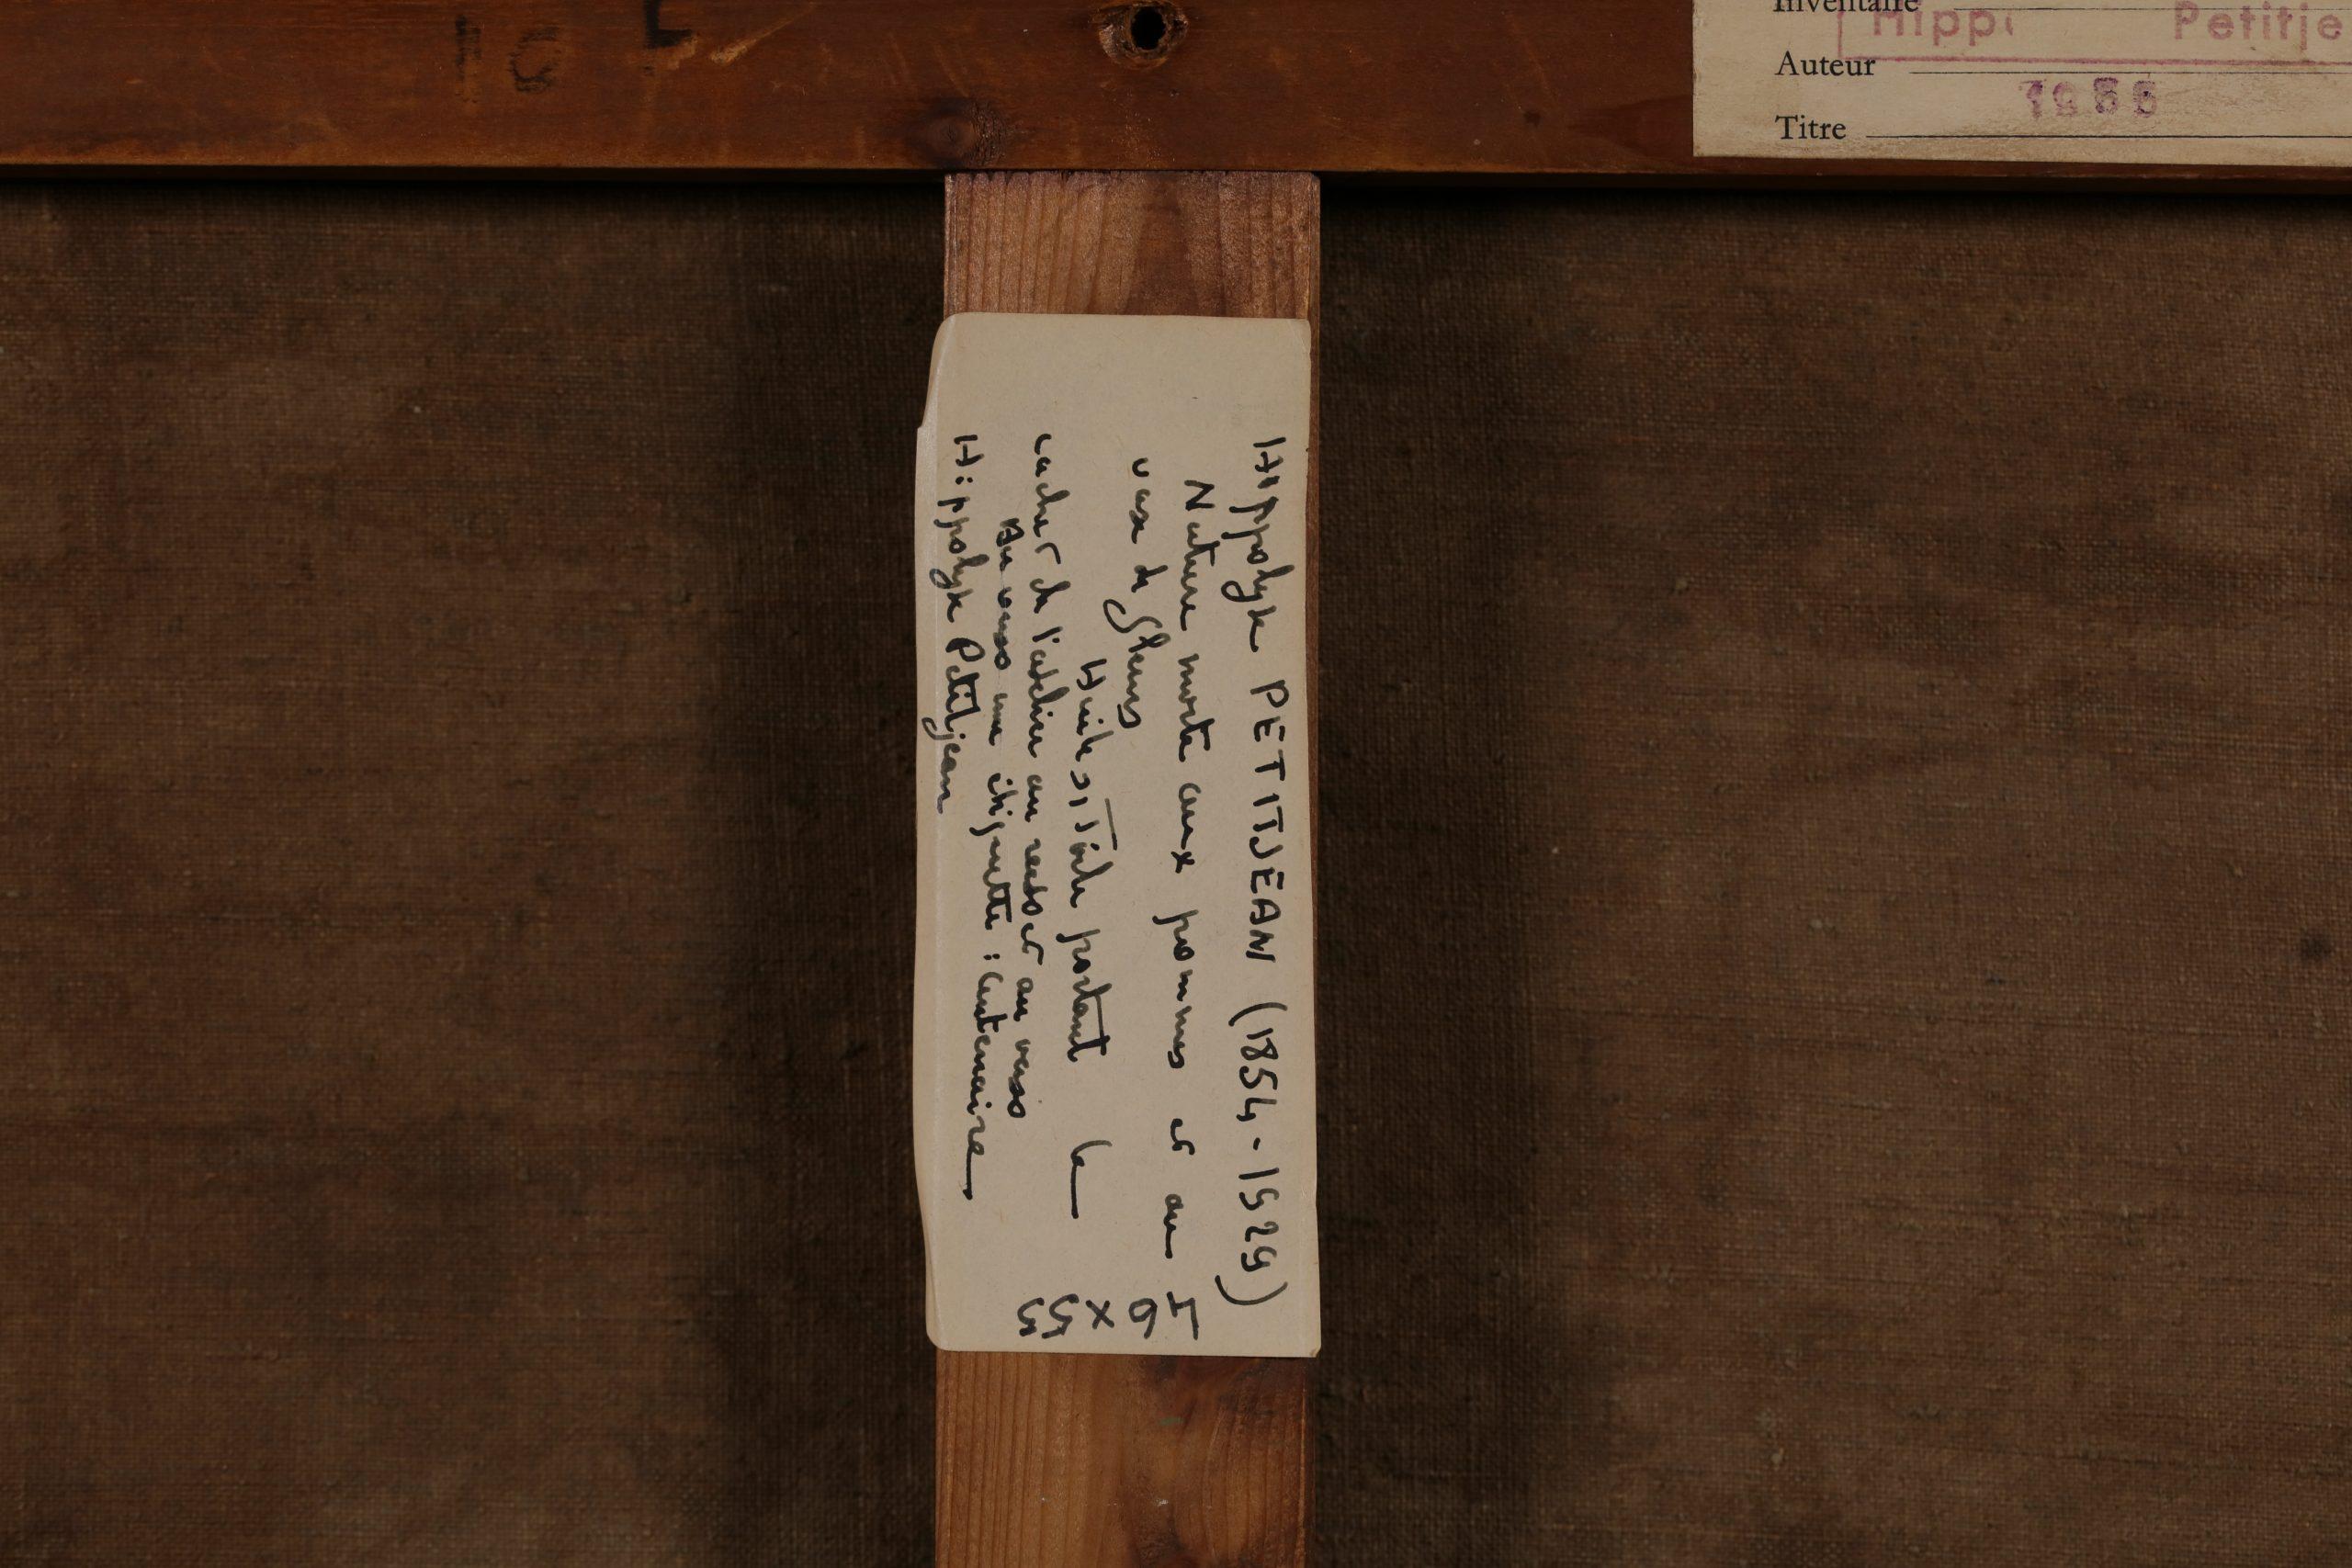 Inventaire
Hippo Petitje
Auteur
Titre
Hippolyte PETITJEAN (1854-1929)
Nature morte aux pommes et au
vase de fleurs
Huile s/Toile portant le
cachet de l'atelier au recto et au verso
Au verso une étiquette : Centenaire
Hippolyte Petitjean
x
55